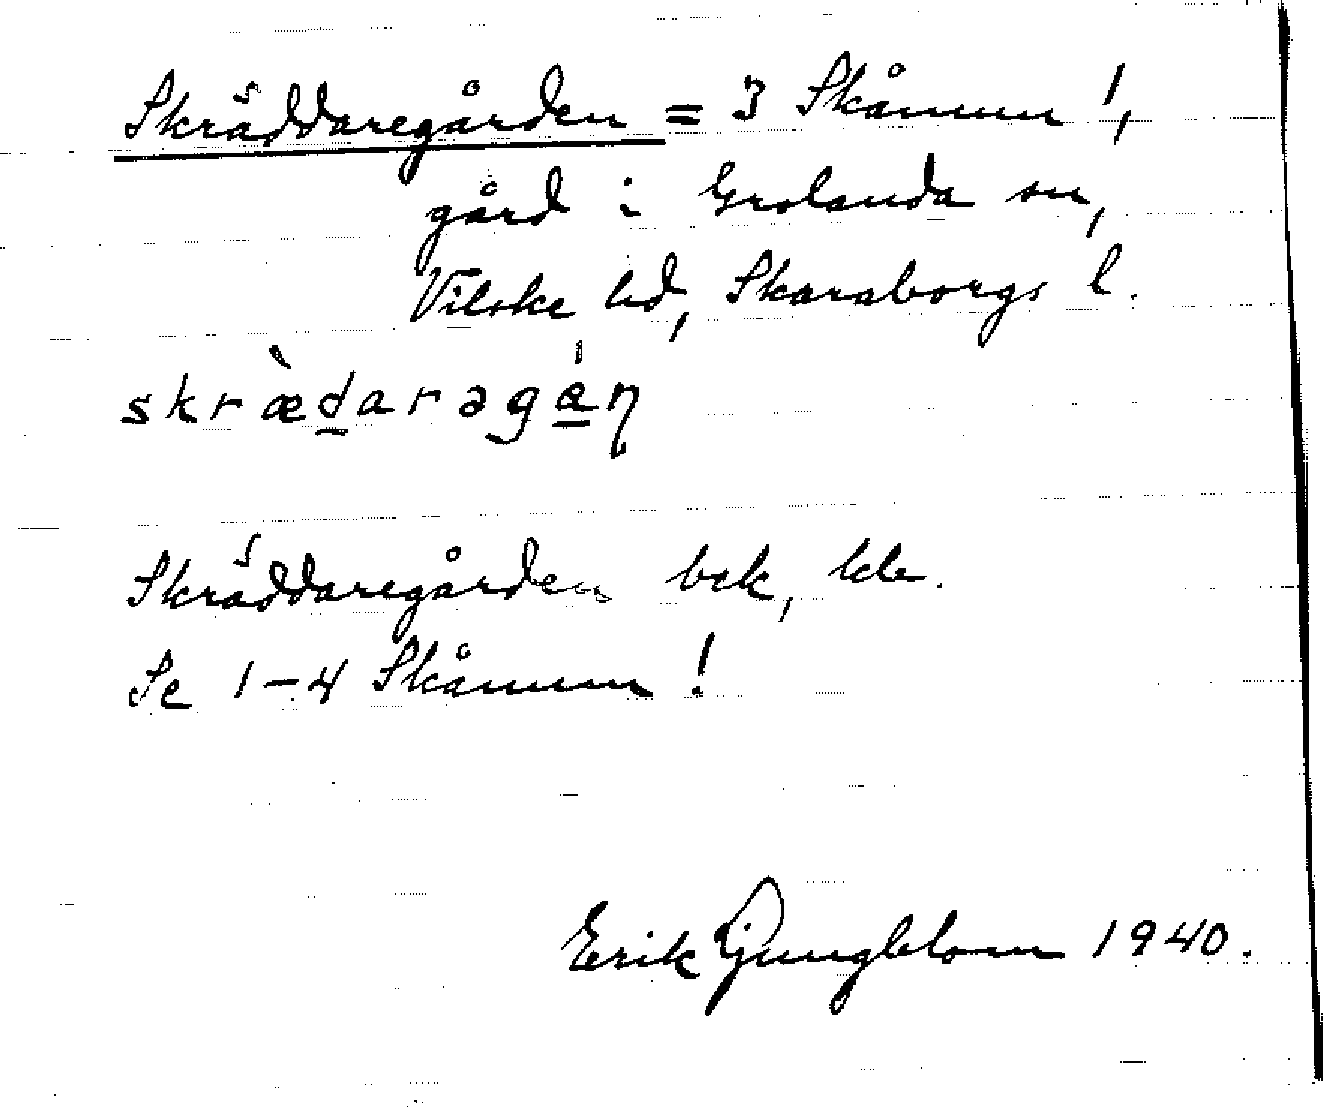 Skräddaregården = 3 Skånum!,
gård i Grolanda sn,
Vilske hd, Skaraborgs l.
skræ̀d̲arəgá̲ꞃ
Skräddaregården bek, kle.
Se 1-4 Skånum!
Erik Ljungblom 1940.